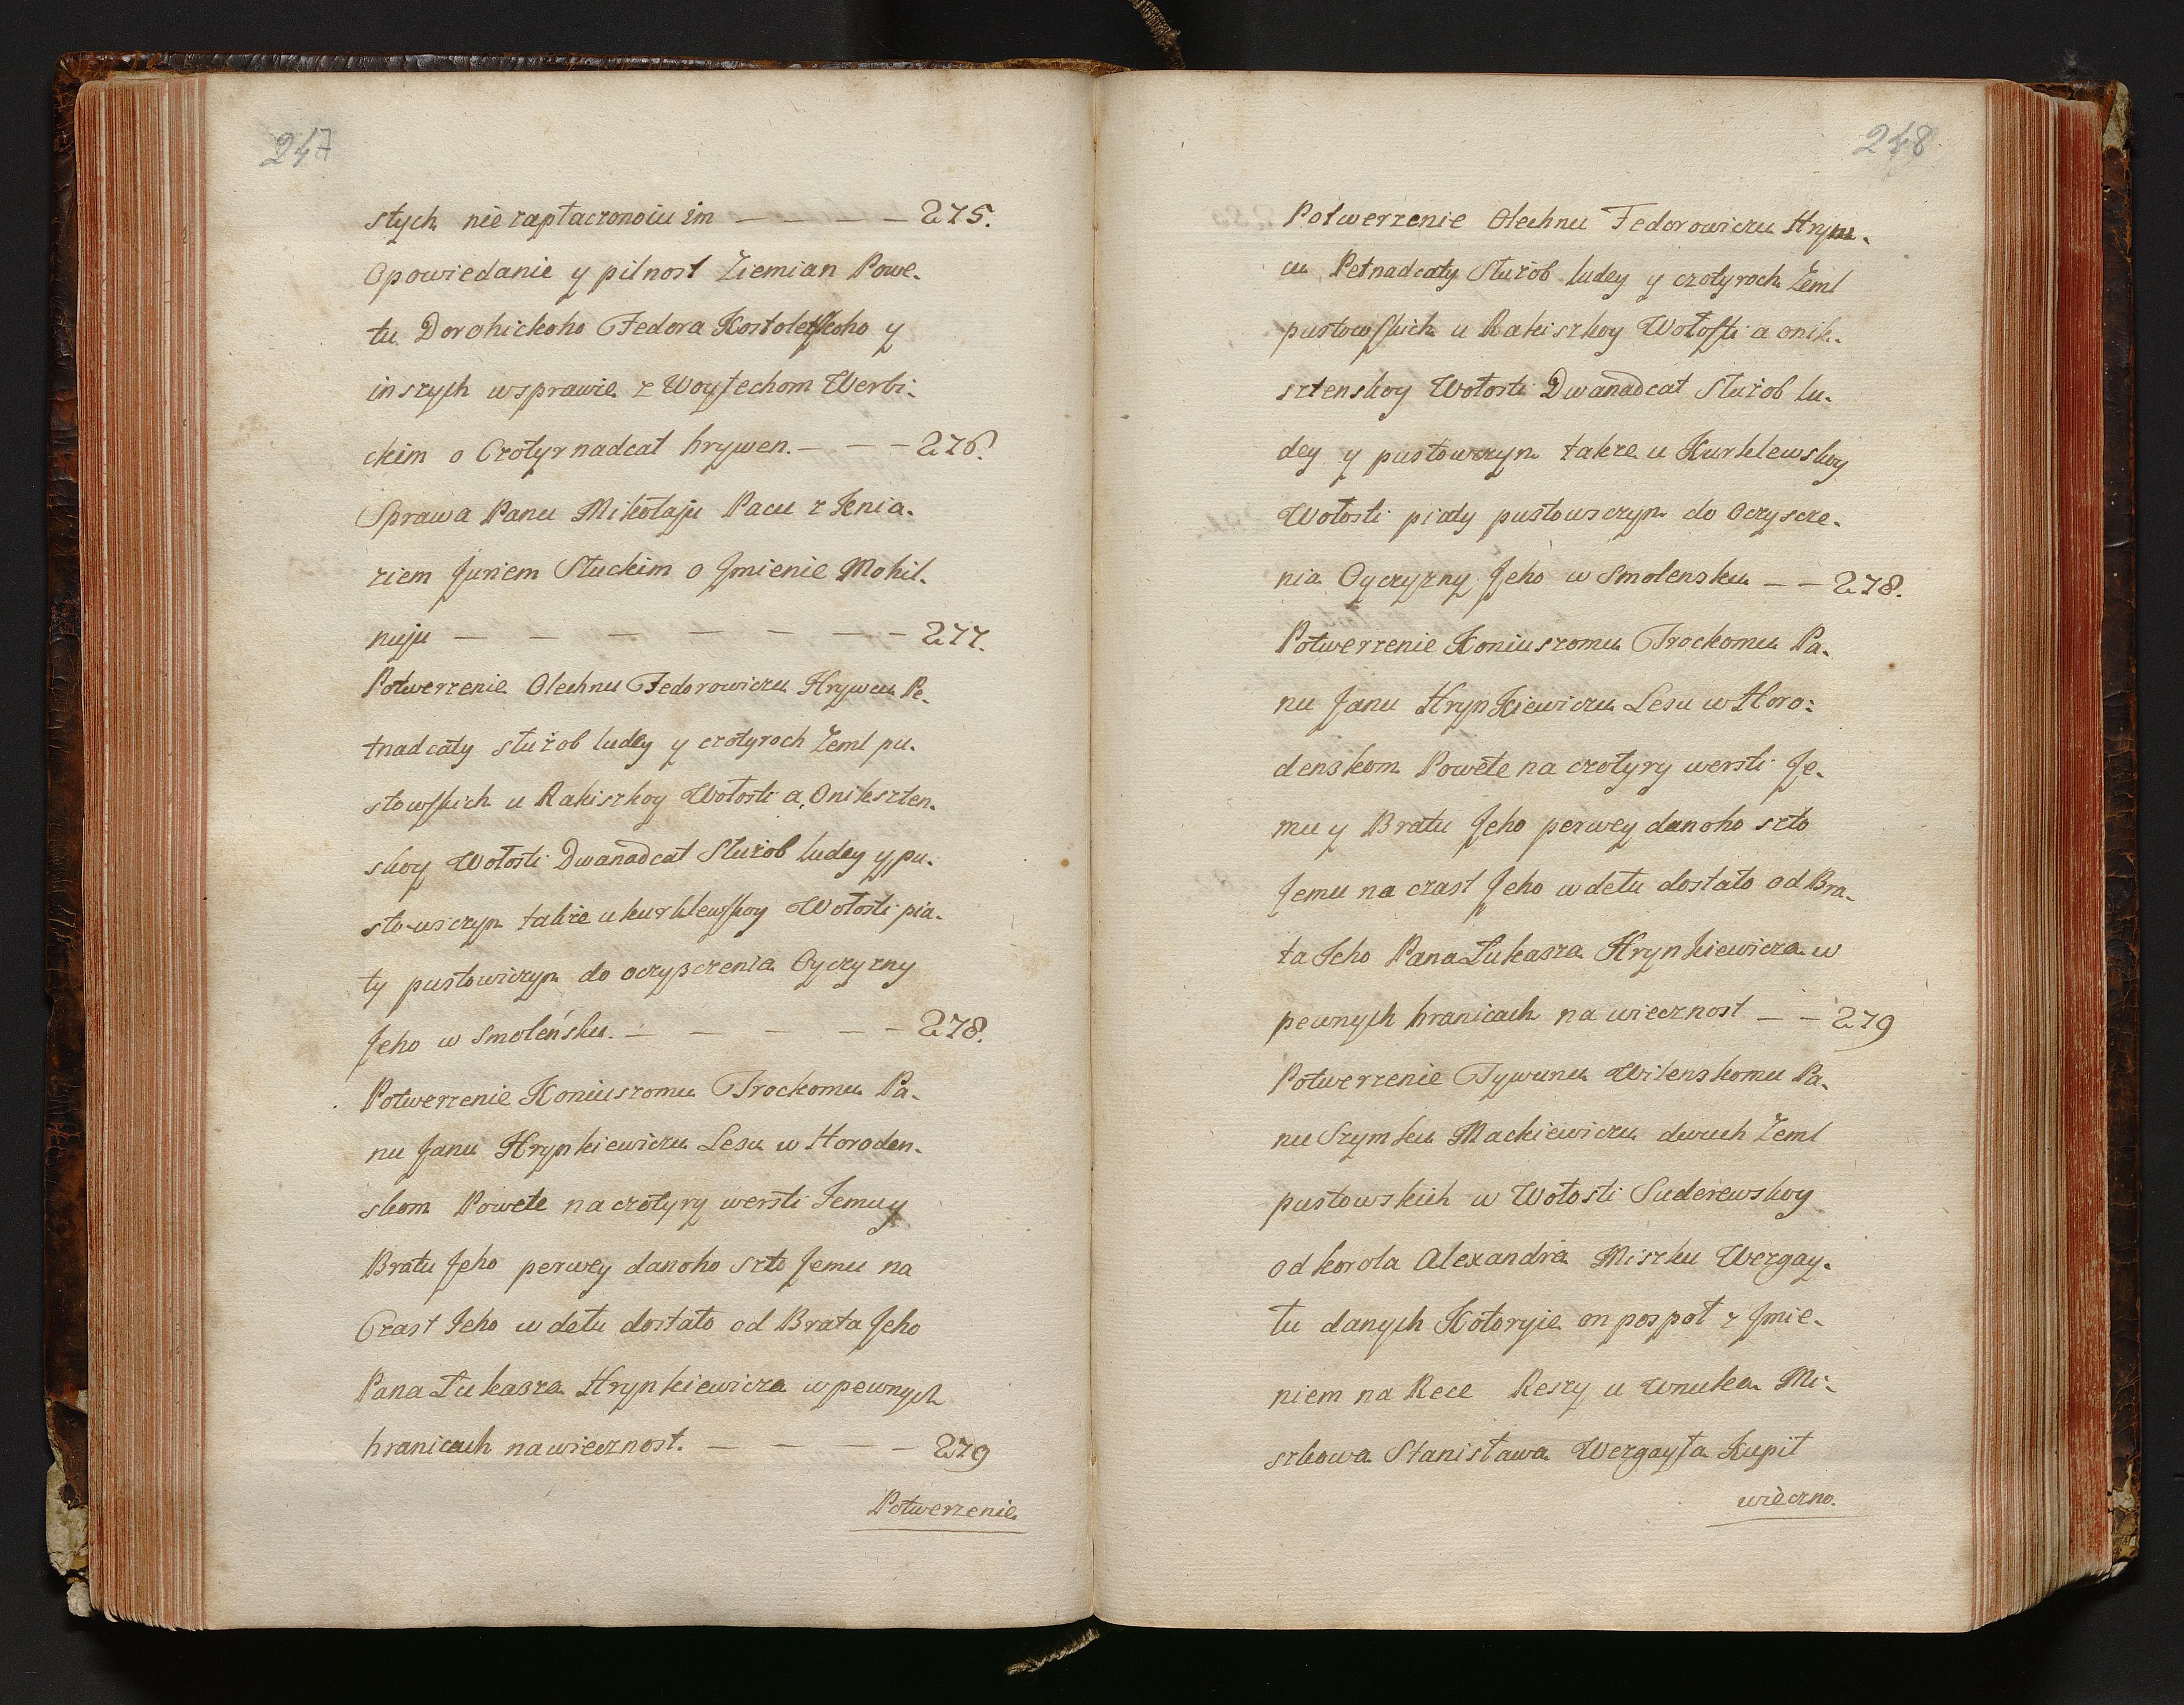 247
stych nie zapłaczonoiu im — — — — 275.
Opowiedanie y pilnost Ziemian Powe-
tu Dorohickoho Fedora Kostoletskoho y
inszych w sprawie z Woytechom Werbi-
ckim o Czotyrnadcat hrywen. — — — 276.
Sprawa Panu Mikołaju Pacu z Xenia-
ziem Juriem Słuckim o Jmienie Mohil-
nuju — — — — — — — 277.
Potwerzenie Olechnu Fedorowiczu Hrywcu Pe-
tnadcaty służob ludey y czotyroch Zeml pu-
stowskich u Rakiszkoy Wołosti a Onikszten-
skoy Wołosti Dwanadcat Służob ludey y pu-
stowsczyn takze u kurklewskoy Wołosti pia-
ty pustowsczyn do oczysczenia Oyczyzny
Jeho w Smoleńsku. — — — — — 278.
Potwerzenie Koniuszomu Trockomu Pa-
nu Janu Hrynkiewiczu Lesu w Horoden-
skom Powete na czotyry wersti Jemu y
Bratu Jeho perwey danoho szto Jemu na
Czast Jeho w dełu dostało od Brata Jeho
Pana Łukasza Hrynkiewicza w pewnych
hranicach na wiecznost. — — — — 279
Potwerzenie
248
Potwerzenie Olechnu Fedorowiczu Hryw-
cu Petnadcaty Służob ludey y czotyroch Zeml
pustowskich u Rakiszkoy Wołosti a onik-
sztenskoy Wołosti Dwanadcat Służob lu-
dey y pustowsczyn takze u Kurklewskoy
Wołosti piaty pustowsczyn do Oczyscze-
nia Oyczyzny Jeho w Smolensku — — 278.
Potwerzenie Koniuszomu Trockomu Pa-
nu Janu Hrynkiewiczu Lesu w Horo-
denskom Powete na czotyry wersti Je-
mu y Bratu Jeho perwey danoho szto
Jemu na czast Jeho w dełu dostało od Bra-
ta Jeho Pana Łukasza Hrynkiewicza w
pewnych hranicach na wiecznost — — 279
Potwerzenie Tywunu Wilenskomu Pa-
nu Szymku Mackiewiczu dwuch Zeml
pustowskich w Wołosti Suderewskoy
od korola Alexandra Miszku Wezgay-
łu danych Kotoryie on pospoł z Jmie-
niem na Rece Reszy u Wnuka Mi-
szkowa Stanisława Wezgayła Kupił
wieczno.